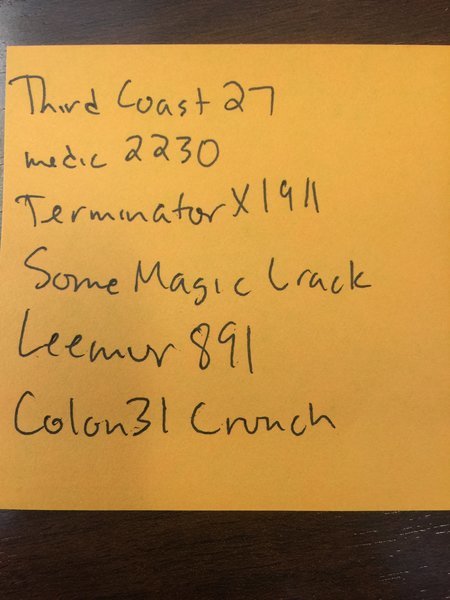 Third Coast 27
medic 2230
Terminator X1911
Some Magic Crack
Leemur 891
Colon31 Crunch